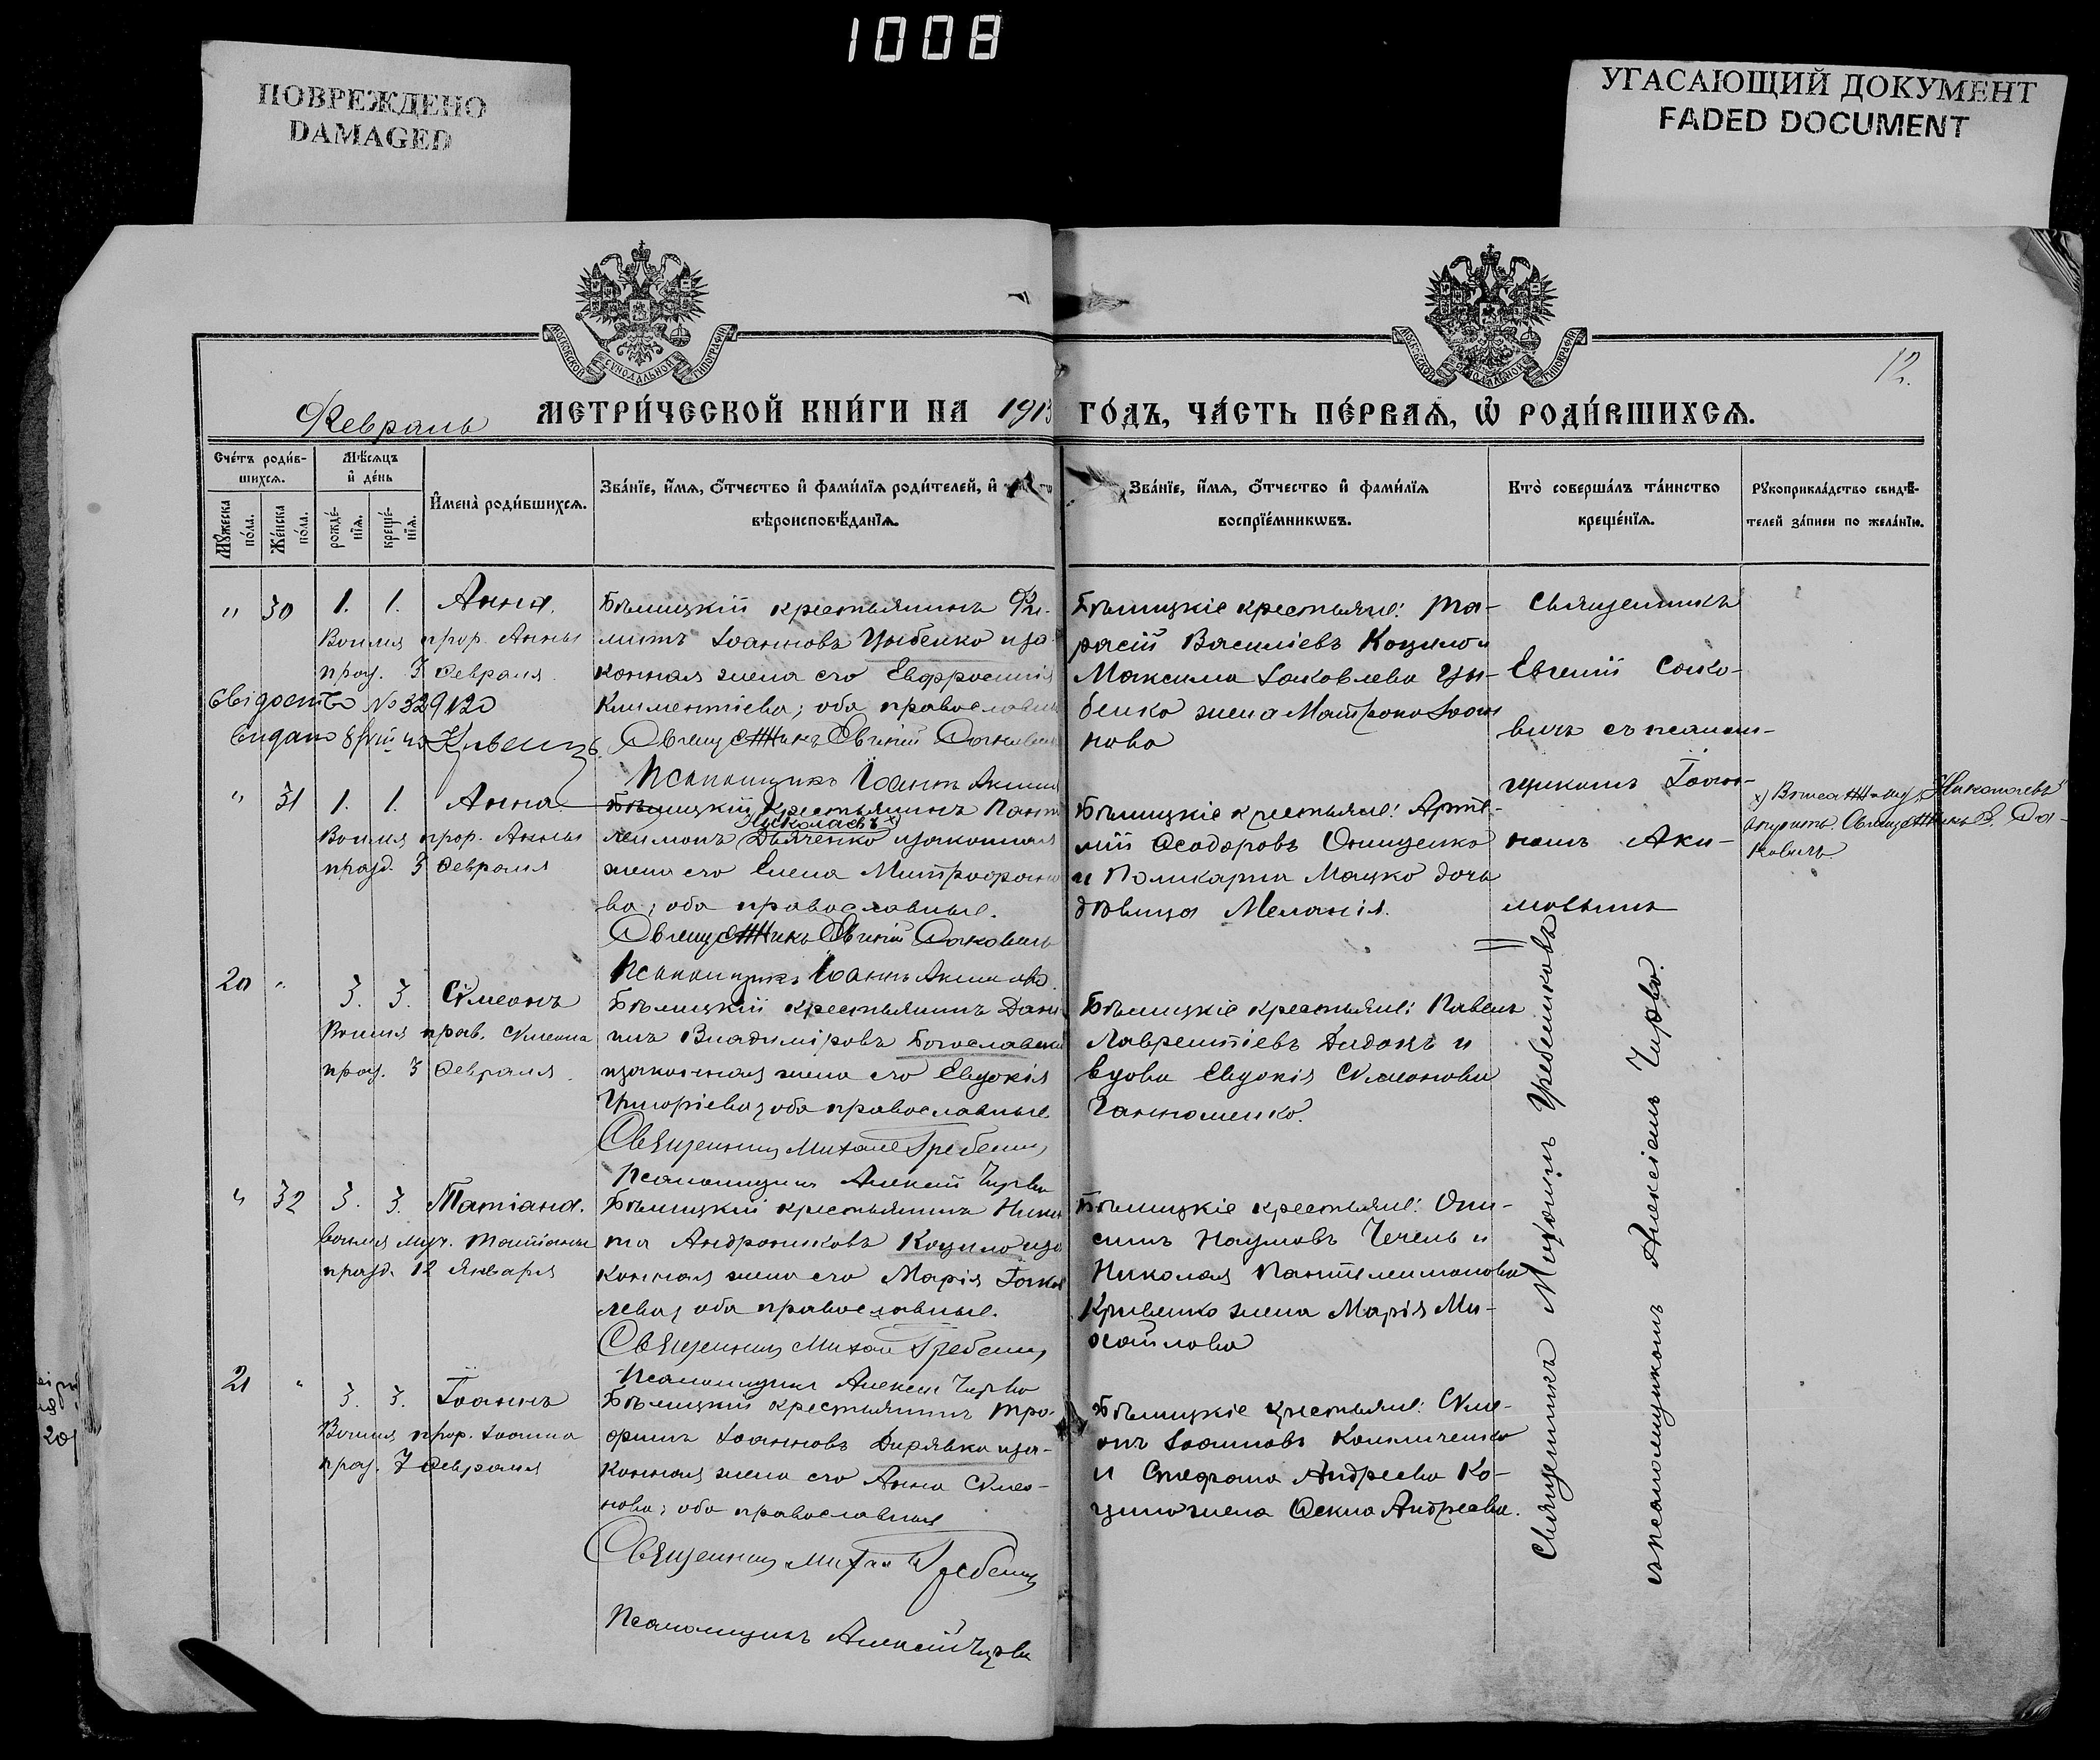 1008
ПОВРЕЖДЕНО
DAMAGED
УГАСАЮЩИЙ ДОКУМЕНТ
FADED DOCUMENT
МОСКОВСКОЙ СИНОДАЛЬНОЙ ТИПОГРАФІИ
МОСКОВСКОЙ СИНОДАЛЬНОЙ ТИПОГРАФІИ
12.
Февраль
МЕТРИ́ЧЕСКОЙ КНИ́ГИ НА 1913 ГО́ДЪ, ЧА́СТЬ ПЕ́РВАѦ, Ѡ҆ РОДИ́ВШИХСѦ.
Сче́тъ роди́в-
шихсѧ.
Мꙋ́жеска по́ла.
Же́нска по́ла.
Мѣ́сѧцъ
и҆ де́нь
рожде́-
нїѧ.
креще́-
нїѧ.
И҆мена̀ роди́вшихсѧ.
Зва́нїе, и҆́мѧ, ѻ҆́тчество и҆ фами́лїѧ роди́телей, и҆
вѣроисповѣ́данїѧ.
Зва́нїе, и҆́мѧ, ѻ҆́тчество и҆ фами́лїѧ
воспрїе́мникѡвъ.
Кто̀ соверша́лъ та́инство
креще́нїѧ.
Рꙋкоприкла́дство свидѣ́-
телей за́писи по жела́нїю.
" 30 1. 1. Анна.
Во имя прор. Анны
праз. 3 Февраля.
Свідоцтво № 32912
видано
Бѣлицкій крестьянинъ Фи-
липъ Іоанновъ Цыбенко и за-
конная жена его Евфросинія
Климентіева; оба православные
Священникъ Евгеній Саковичъ
Псаломщикъ Іоаннъ Акимов
Бѣлицкіе крестьяне: Та-
расій Василіевъ Коцило и
Максима Іаковлева Цы-
бенко жена Матрона Іоан
нова
Священникъ
Евгеній Сако-
вичъ съ псалом-
щикомъ Іоан-
номъ Аки-
мовымъ
" 31 1. 1. Анна
Во имя прор. Анны
празд. 3 Февраля
Бѣлицкій крестьянинъ Панте
Николаевъ х)
леимонъ Дьяченко и законная
жена его Елена Митрофано
ва; оба православные.
Священникъ Евгеній Саковичъ
Псаломщикъ Іоаннъ Акимов
Бѣлицкіе крестьяне: Арте-
мій Ѳеодоровъ Онищенко
и Поликарпа Мацко дочь
дѣвица Меланія.
х) "Николаевъ"
Священникъ Е. Са-
ковичъ
20 " 3. 3. Сѵмеонъ
Во имя прав. Сѵмеона
праз. 3 Февраля.
Бѣлицкій крестьянинъ Дани
илъ Владиміровъ Богославскій
и законная жена его Евдокія
Григоріева; оба православные
Священникъ Михаилъ Гребеник
Псаломщикъ Алексій Чирва
Бѣлицкіе крестьяне: Павелъ
Лаврентіевъ Дидокъ и
вдова Евдокія Сѵмеонова
" 32 3. 3. Татіана.
Во имя муч. Татіаны
празд. 12 Января
Бѣлицкій крестьянинъ Ники
та Андрониковъ Коцило и за
конная жена его Марія Іаков
лева; оба православные.
Священникъ Михаил Гребеник
Псаломщикъ Алексій Чирва
Бѣлицкіе крестьяне: Они-
симъ Наумовъ Чечель и
Николая Пантелеимонова
Кривенко жена Марія Ми-
хаилова
21 " 3. 3. Іоаннъ
Во имя прор. Іоанна
праз. 7 Февраля
Бѣлицкій крестьянинъ Тро-
фимъ Іоанновъ Дирявка и за-
конная жена его Анна Сѵмео-
нова; оба православные
Священникъ Михаил Гребеник
Псаломщикъ Алексій Чирва
Бѣлицкіе крестьяне: Сѵме-
онъ Іоанновъ
и Стефана Андреева Ко-
цило жена Ѳекла Андреева.
Священникъ Михаилъ Гребениковъ
съ псаломщикомъ Алексіемъ Чирво.